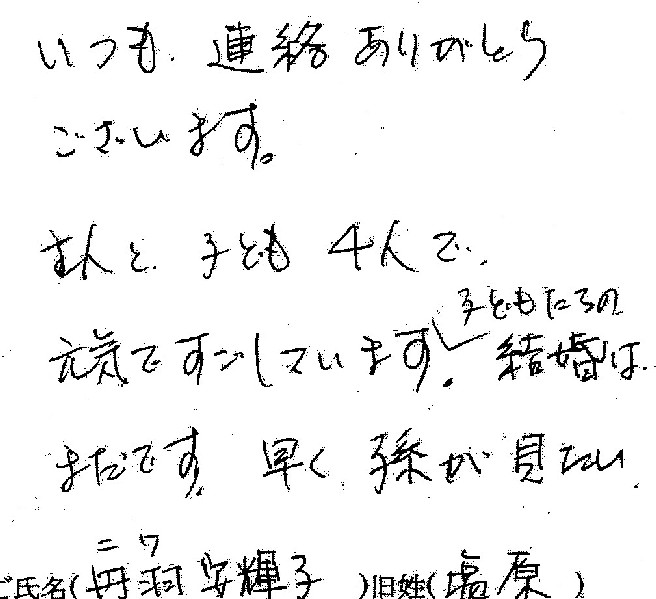 いつも、連絡ありがとう
ございます。
主人と、子ども4人で、
元気ですごしています。子どもたちの
結婚は、
まだです。早く、孫が見たい。
ニワ
ご氏名(丹羽安輝子)旧姓(塩原)